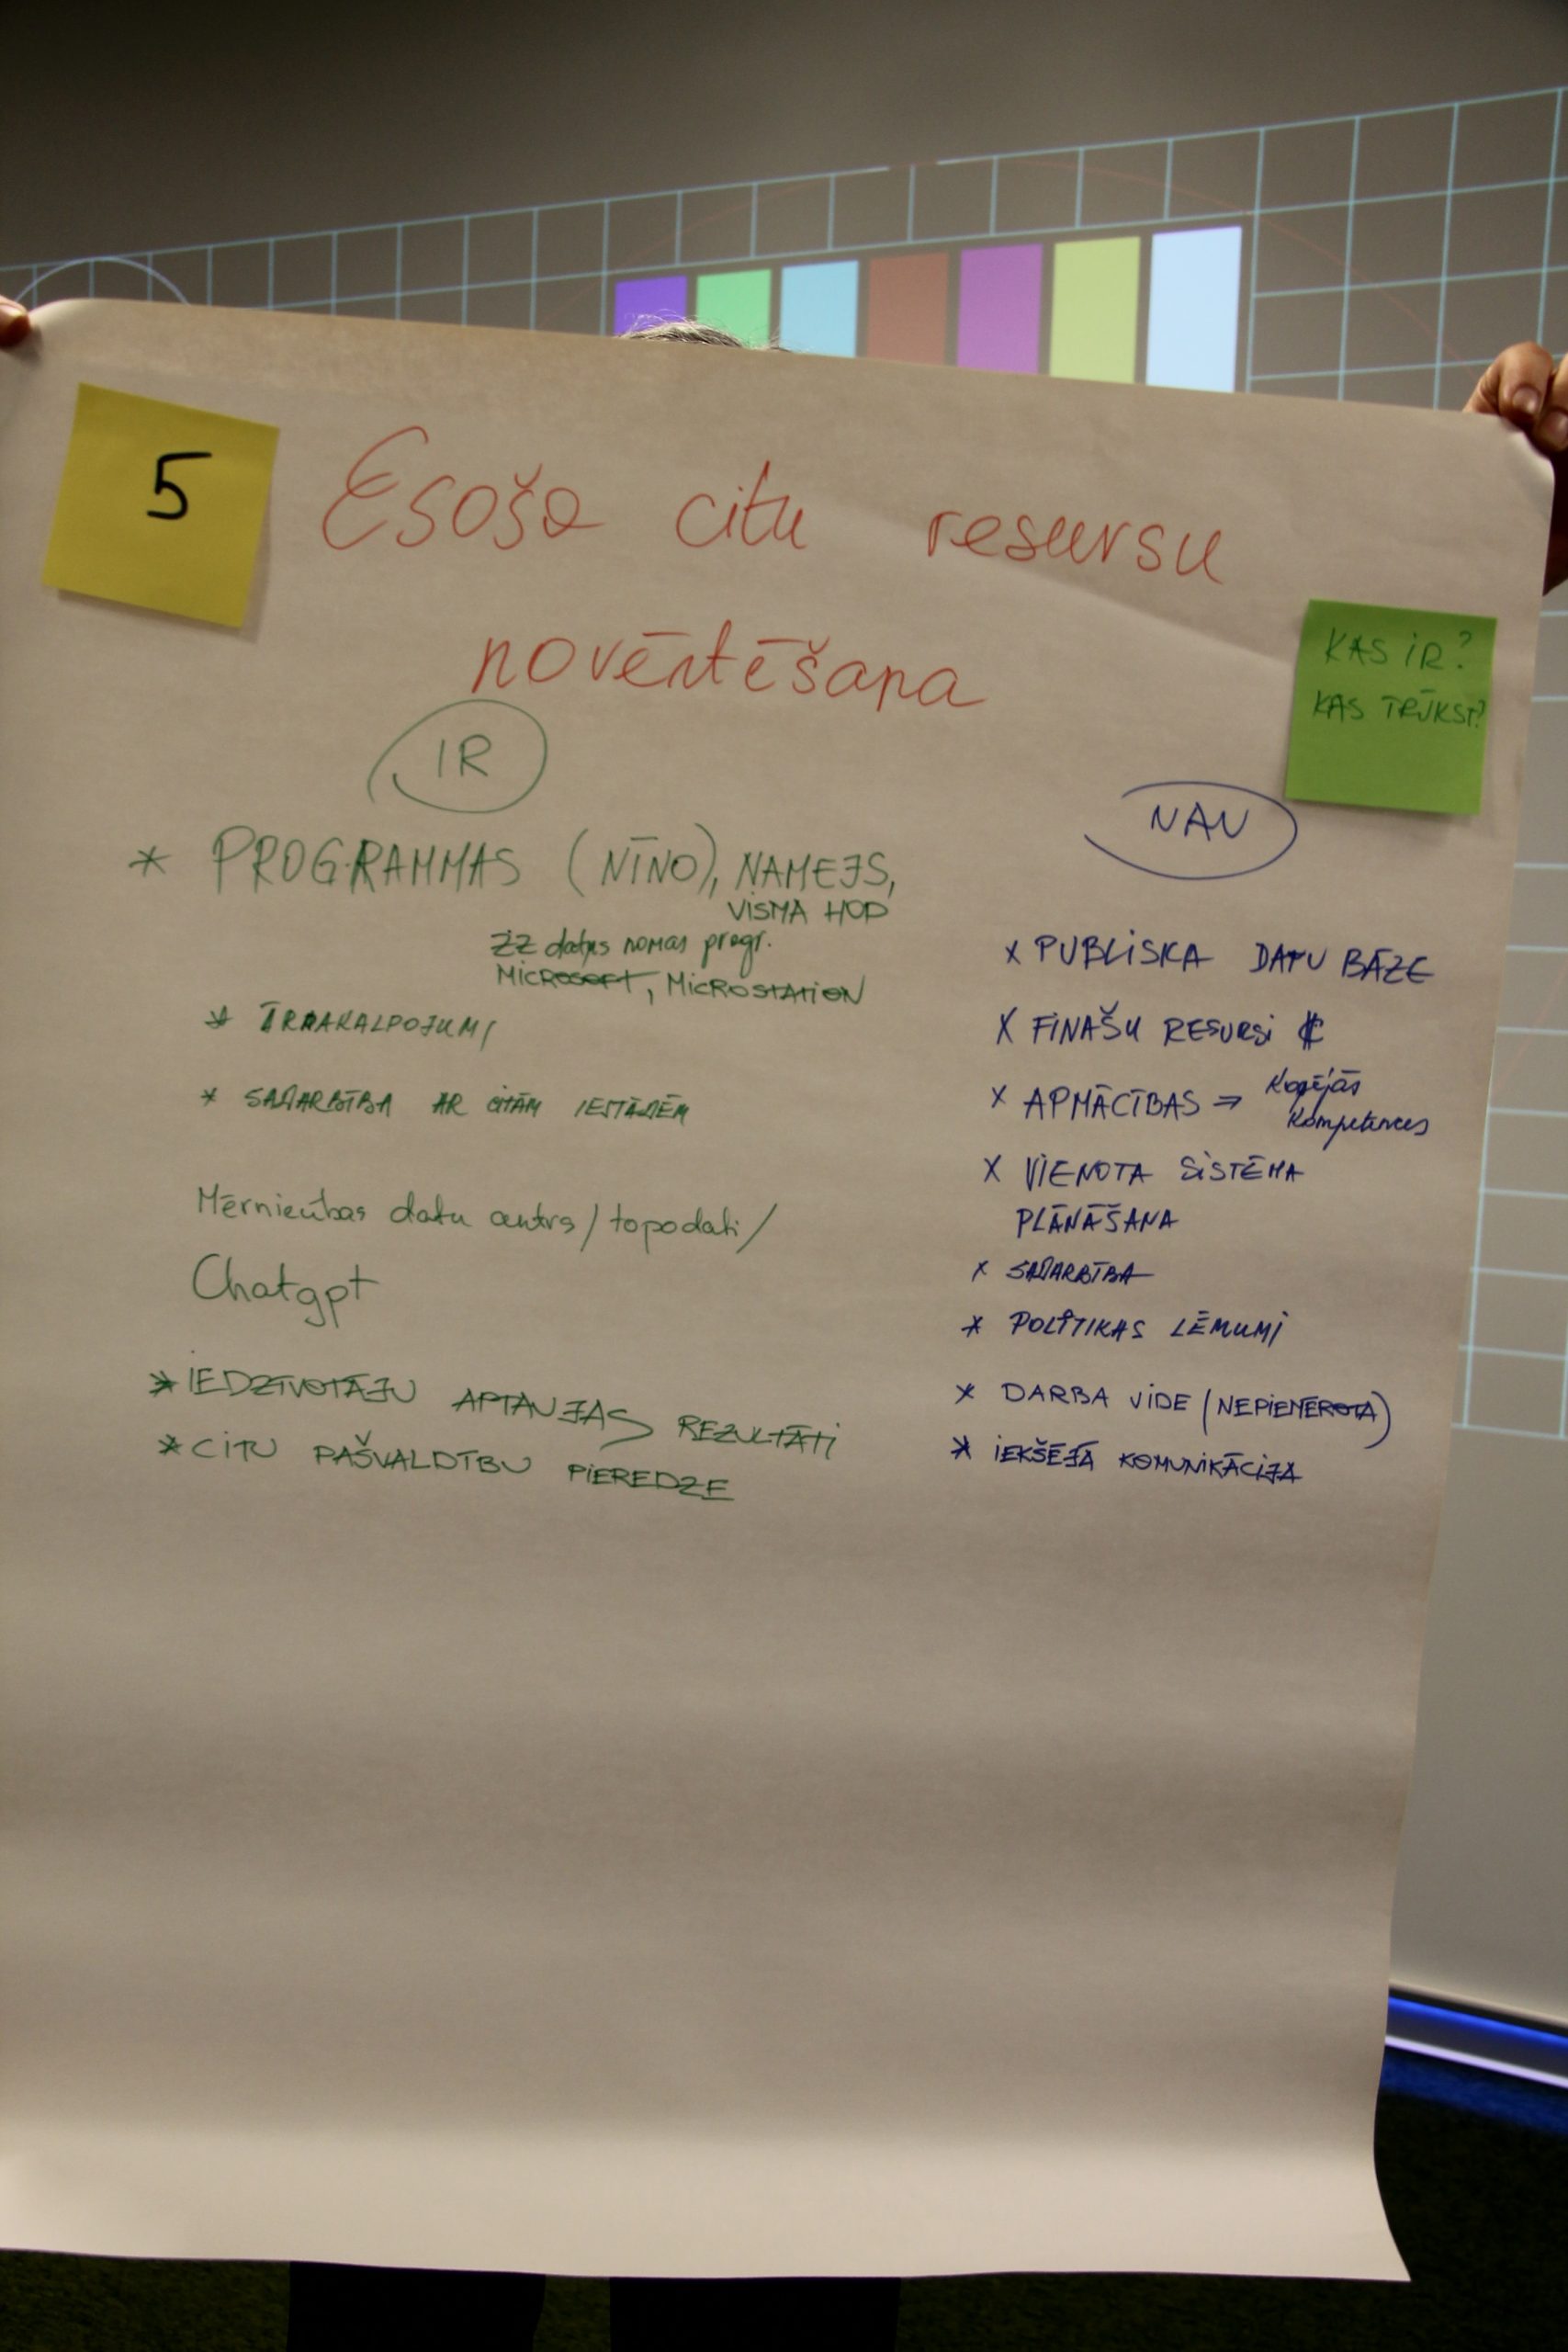 5
Esošo citu resursu
novērtēšana
KAS IR?
KAS TRŪKST?
IR
* PROGRAMMAS (NĪNO), NAMEJS,
VISMA HOP
ZZ dats nomas progr.
MICROSOFT, MICROSTATION
* ĀRPAKALPOJUMI
* SADARBĪBA AR CITĀM IESTĀDĒM
Mērniecības datu centrs/topodati/
Chatgpt
* IEDZĪVOTĀJU APTAUJAS REZULTĀTI
* CITU PAŠVALDĪBU PIEREDZE
NAV
x PUBLISKA DATU BĀZE
x FINAŠU RESURSI €
x APMĀCĪBAS ⇒ Kopējās
Kompetences
x VIENOTA SISTĒMA
PLĀNĀŠANA
x SADARBĪBA
* POLĪTIKAS LĒMUMI
* DARBA VIDE (NEPIEMĒROTA)
* IEKŠĒJĀ KOMUNIKĀCIJA